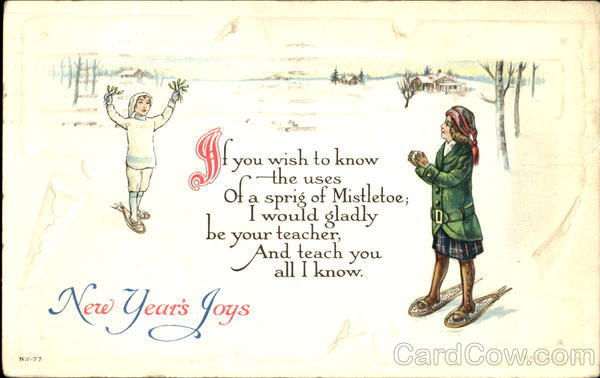 If you wish to know
the uses
Of a sprig of Mistletoe;
I would gladly
be your teacher,
And teach you
all I know.
New Year's Joys
N.Y-77
CardCow.com